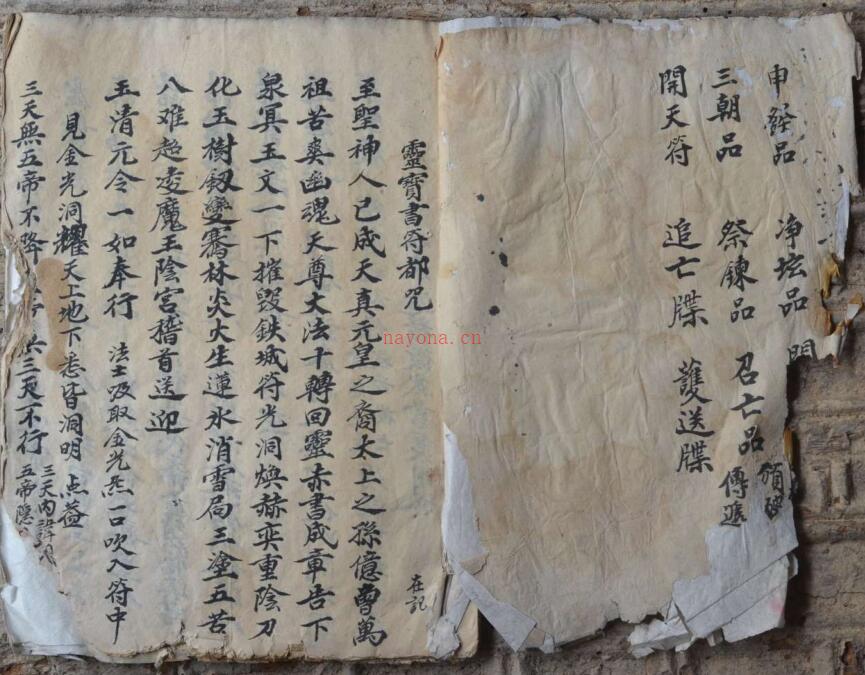 申經品 净坛品 開
三朝品 祭鍊品 召亡品 頒
開天符 追亡牒 傳遞
護送牒
靈寶書符都咒
至聖神人已成天真元皇之裔太上之孫億曾萬
祖苦爽幽魂天尊大法千轉回靈赤書成章告下
泉冥玉文一下摧毀鉄城符光洞煥赫奕重陰刀
化玉樹劔變騫林炎火生蓮氷消雪局三塗五苦
八难超凌魔王陰宮稽首送迎
玉清元令一如奉行 法士吸取金光炁一口吹入符中
見金光洞耀天上地下悉皆洞明 点益
三天炁五帝不降 三天不行 三天內諱 五帝隐
在記
nayona.cn